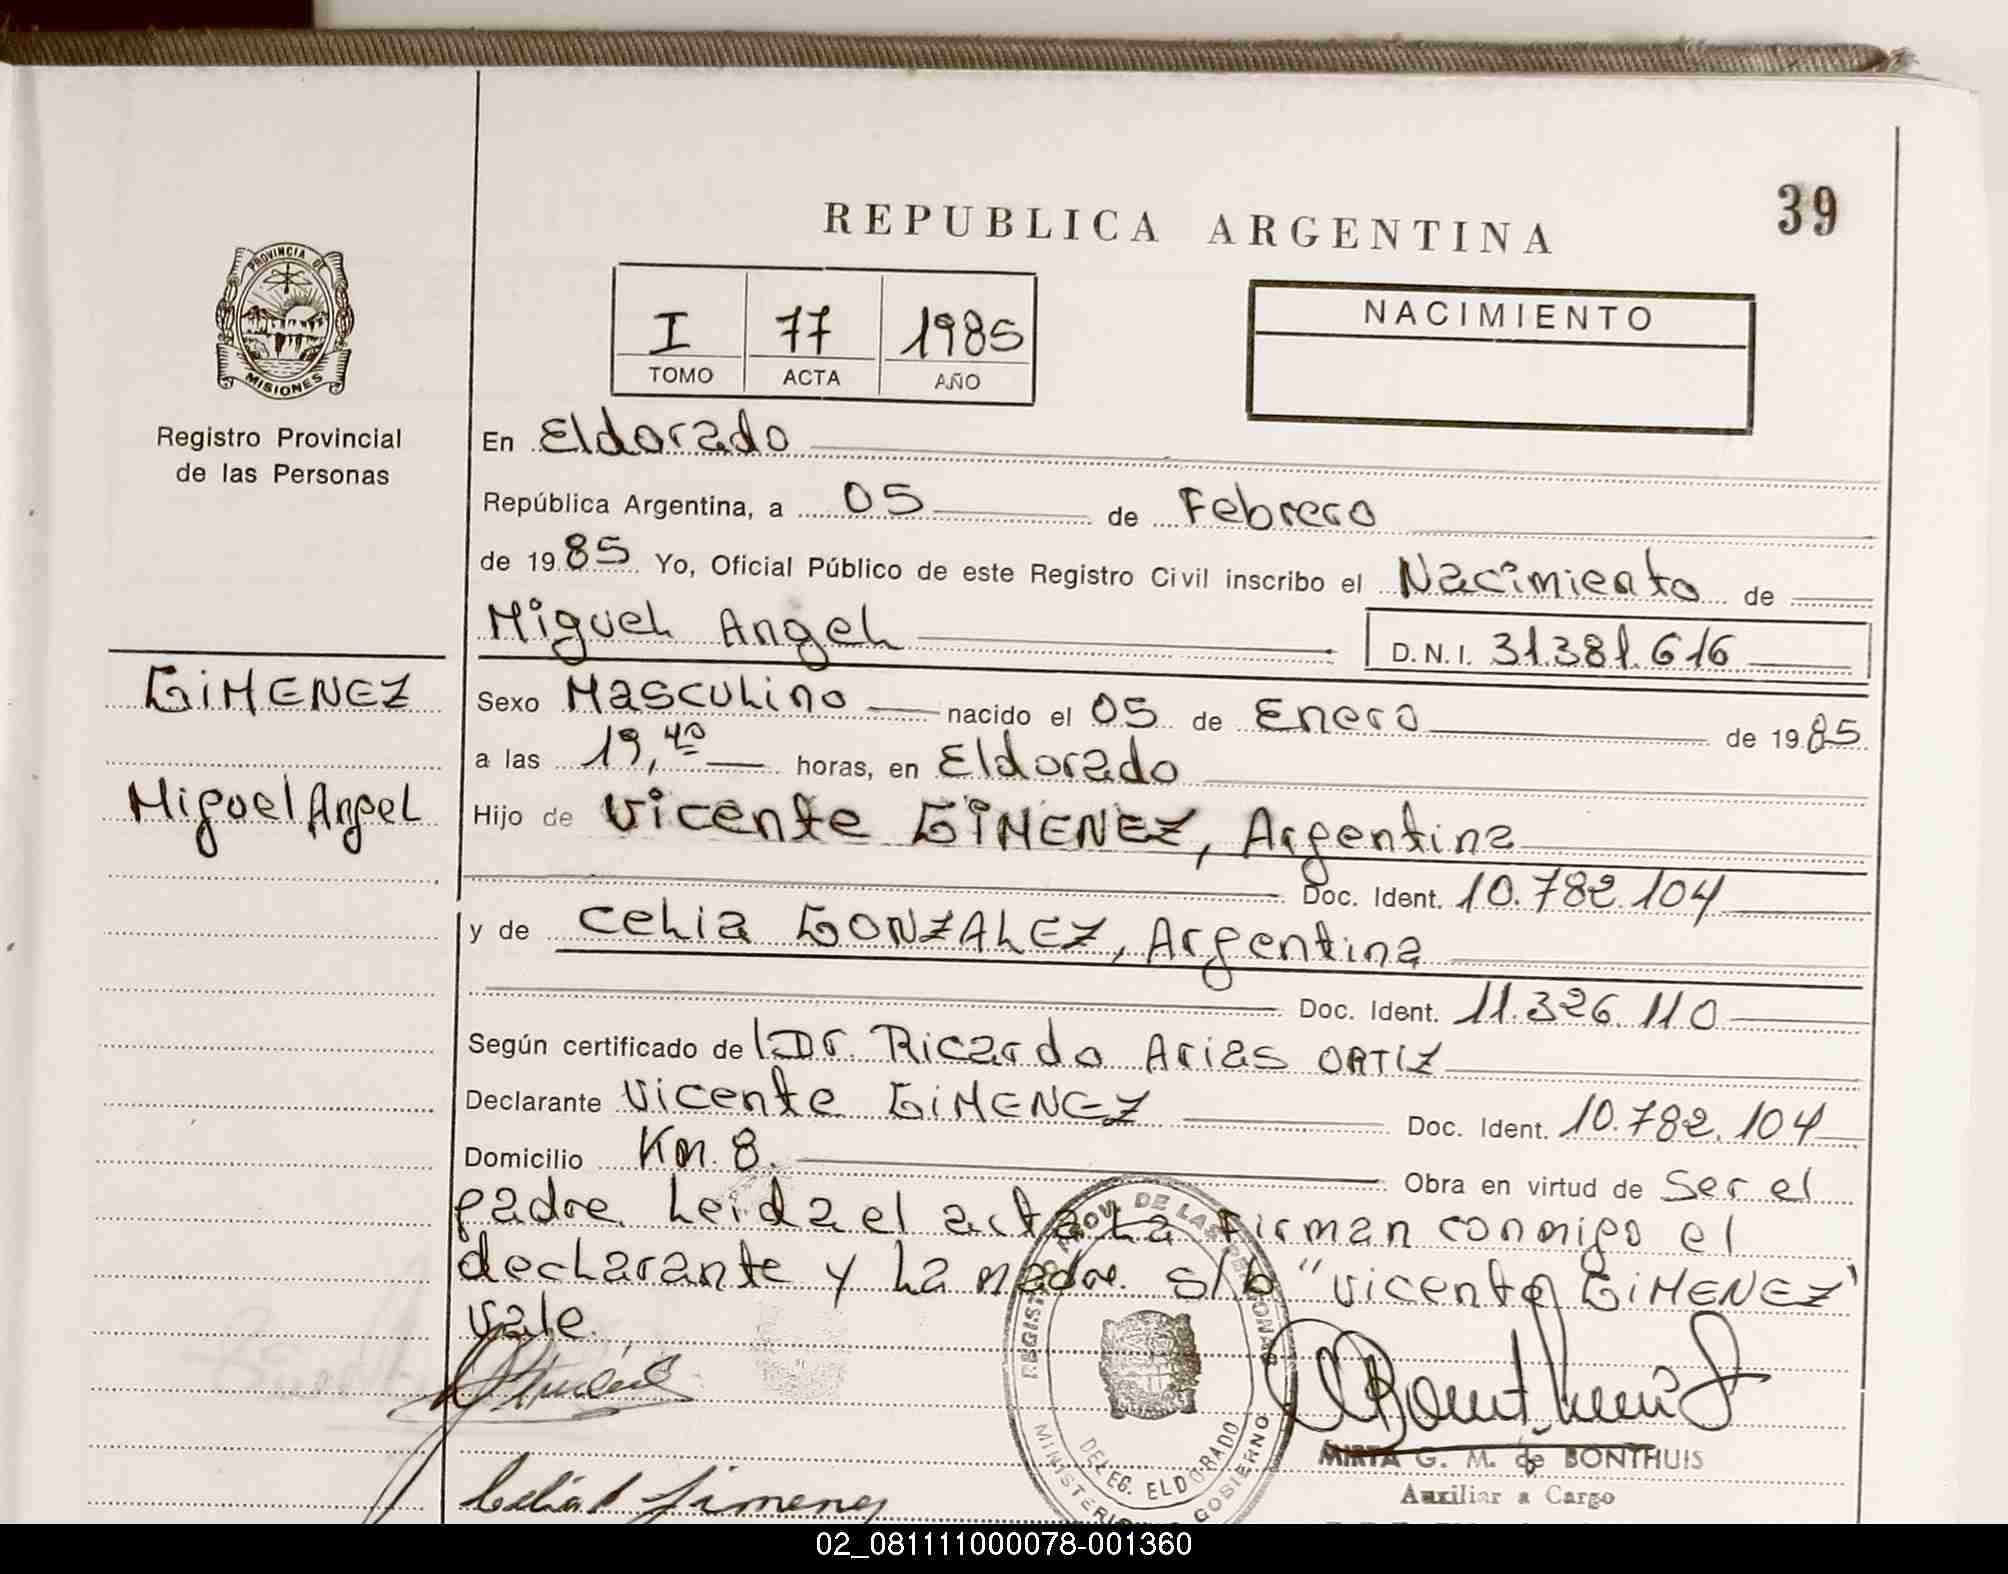 39
REPUBLICA ARGENTINA
PROVINCIA DE
MISIONES
I 77 1985
TOMO ACTA AÑO
NACIMIENTO
Registro Provincial
de las Personas
En Eldorado
República Argentina, a 05 de Febrero
de 1985 Yo, Oficial Público de este Registro Civil inscribo el Nacimiento de
Miguel Angel D.N.I. 31.381.616
GiMENEZ
Miguel Angel
Sexo Masculino nacido el 05 de Enero de 1985
a las 19,40 horas, en Eldorado
Hijo de Vicente GiMENEZ, Argentina
Doc. Ident. 10.782.104
y de Celia GONZALEZ, Argentina
Doc. Ident. 11.326.110
Según certificado de l Dr. Ricardo Arias ORTIZ
Declarante Vicente GiMENEZ Doc. Ident. 10.782.104
Domicilio Km. 8. Obra en virtud de Ser el
padre. Leida el acta La firman conmigo el
declarante y La madre. s/b "Vicente GiMENEZ"
vale.
REGISTRO PROV. DE LAS PERSONAS
DELEG. ELDORADO
GOBIERNO
Celia Jimenez
MIRTA G. M. de BONTHUIS
Auxiliar a Cargo
02_081111000078-001360